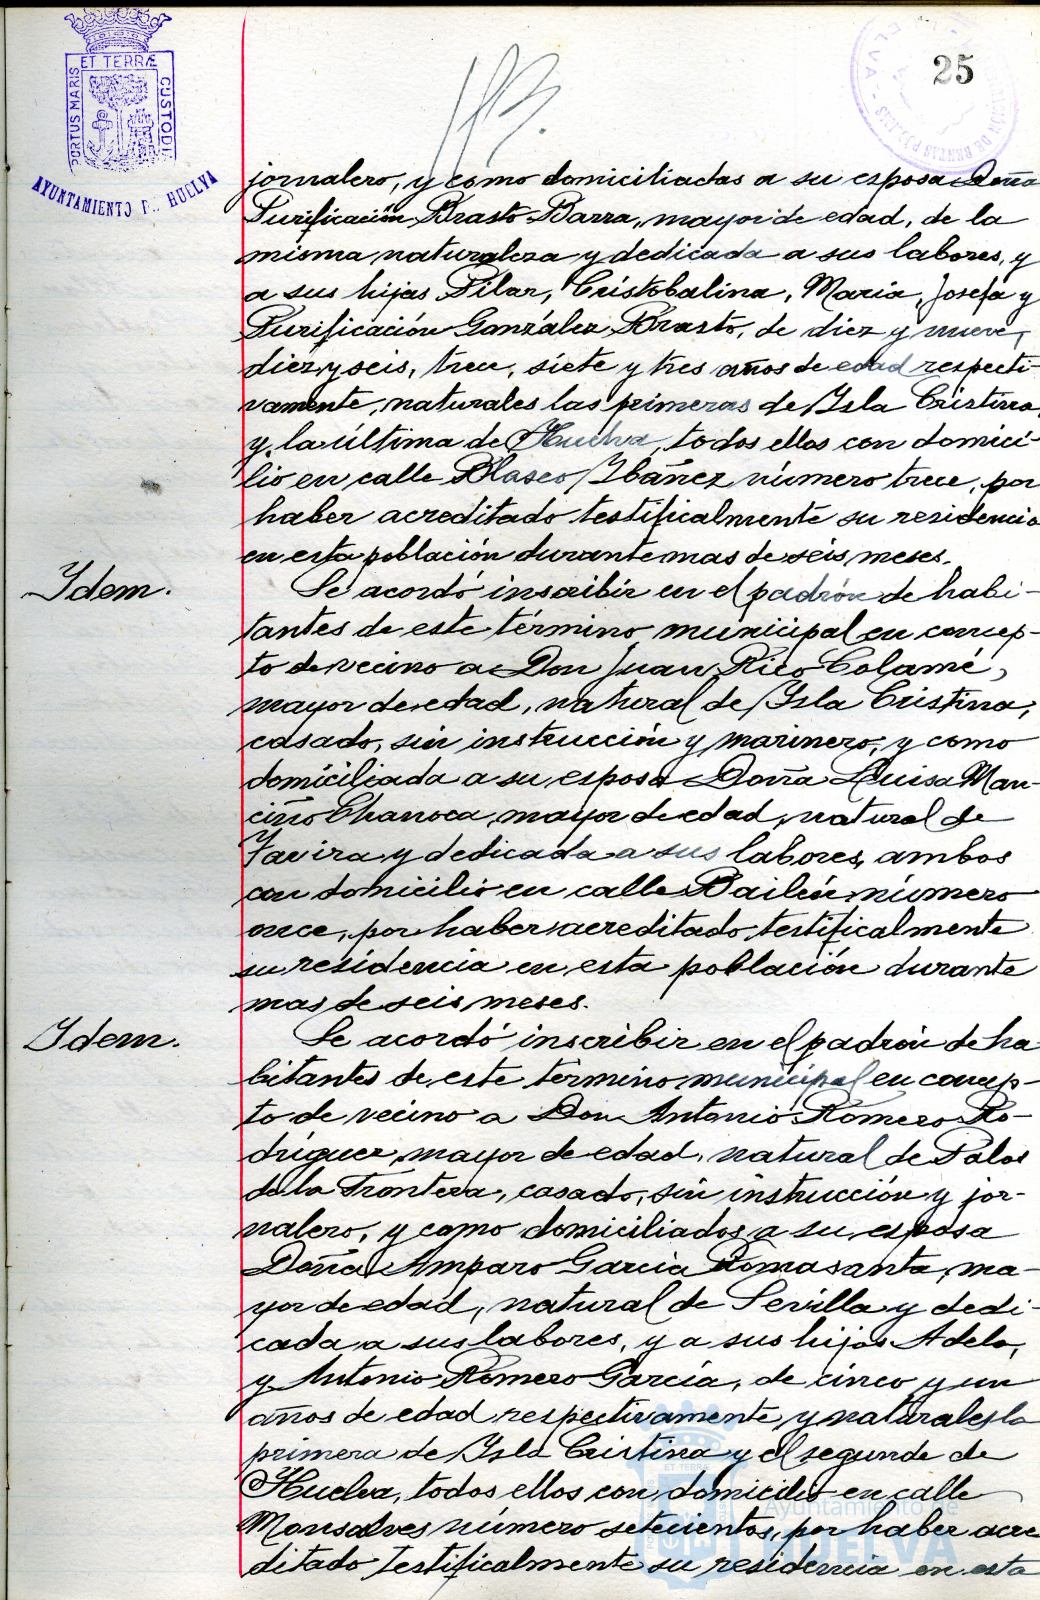 25
PORTUS MARIS ET TERRÆ CUSTODIA
AYUNTAMIENTO DE HUELVA
jornalero, y como domiciliadas a su esposa Doña
Purificación Brasto Barra, mayor de edad, de la
misma naturaleza y dedicada a sus labores, y
a sus hijas Pilar, Cristobalina, María, Josefa y
Purificación González Brasto, de diez y nueve,
diez y seis, trece, siete y tres años de edad respecti-
vamente, naturales las primeras de Isla Cristina,
y la última de Huelva, todos ellos con domici-
lio en calle Blasco Ybáñez número trece, por
haber acreditado testificalmente su residencia
en esta población durante mas de seis meses.
Ydem.
Se acordó inscribir en el padrón de habi-
tantes de este término municipal en concep-
to de vecino a Don Juan Rico Colamé,
mayor de edad, natural de Ysla Cristina,
casado, sin instrucción y marinero, y como
domiciliada a su esposa Doña Luisa Man-
ciño Chanoca, mayor de edad, natural de
Tavira y dedicada a sus labores, ambos
con domicilio en calle Bailén número
once, por haber acreditado testificalmente
su residencia en esta población durante
mas de seis meses.
Ydem.
Se acordó inscribir en el padrón de ha-
bitantes de este término municipal en concep-
to de vecino a Don Antonio Romero Ro-
dríguez, mayor de edad, natural de Palos
de la Frontera, casado, sin instrucción y jor-
nalero, y como domiciliados a su esposa
Doña Amparo García Romasanta, ma-
yor de edad, natural de Sevilla y dedi-
cada a sus labores, y a sus hijos Adela,
y Antonio Romero García, de cinco y un
años de edad respectivamente y naturales la
primera de Ysla Cristina y el segundo de
Huelva, todos ellos con domicilio en calle
Monsalves número setecientos, por haber acre
ditado testificalmente su residencia en esta
Ayuntamiento de
HUELVA